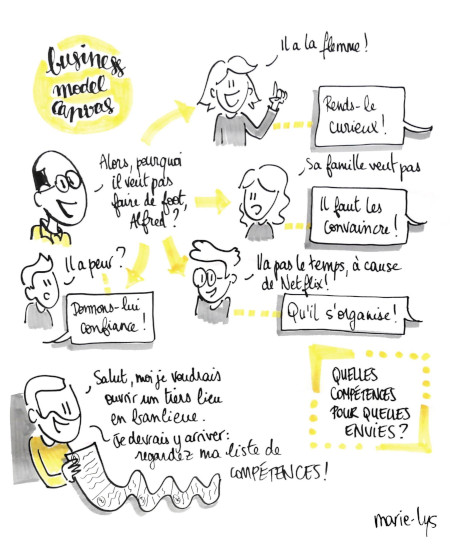 business
model
canvas
Il a la flemme !
Rends-le
curieux !
Alors, pourquoi
il veut pas
faire de foot,
Alfred ?
Sa famille veut pas
Il faut les
convaincre !
Il a peur ?
Donnons-lui
confiance !
Va pas le temps, à cause
de Netflix !
Qu'il s'organise !
Salut, moi je voudrais
ouvrir un tiers lieu
en banlieue.
Je devrais y arriver :
regardez ma liste de
COMPÉTENCES !
QUELLES
COMPÉTENCES
POUR QUELLES
ENVIES ?
marie-lys